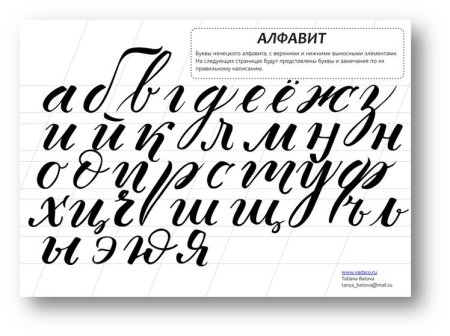 АЛФАВИТ
Буквы ненецкого алфавита, с верхними и нижними выносными элементами.
На следующих страницах будут представлены буквы и замечания по их
правильному написанию.
а б в г д е ё ж з
и й к л м ӈ н
о о п р с т у ф
х ц ч ш щ ъ ь
ы э ю я
www.vadaco.ru
Tatiana Batova
tanya_batova@mail.ru